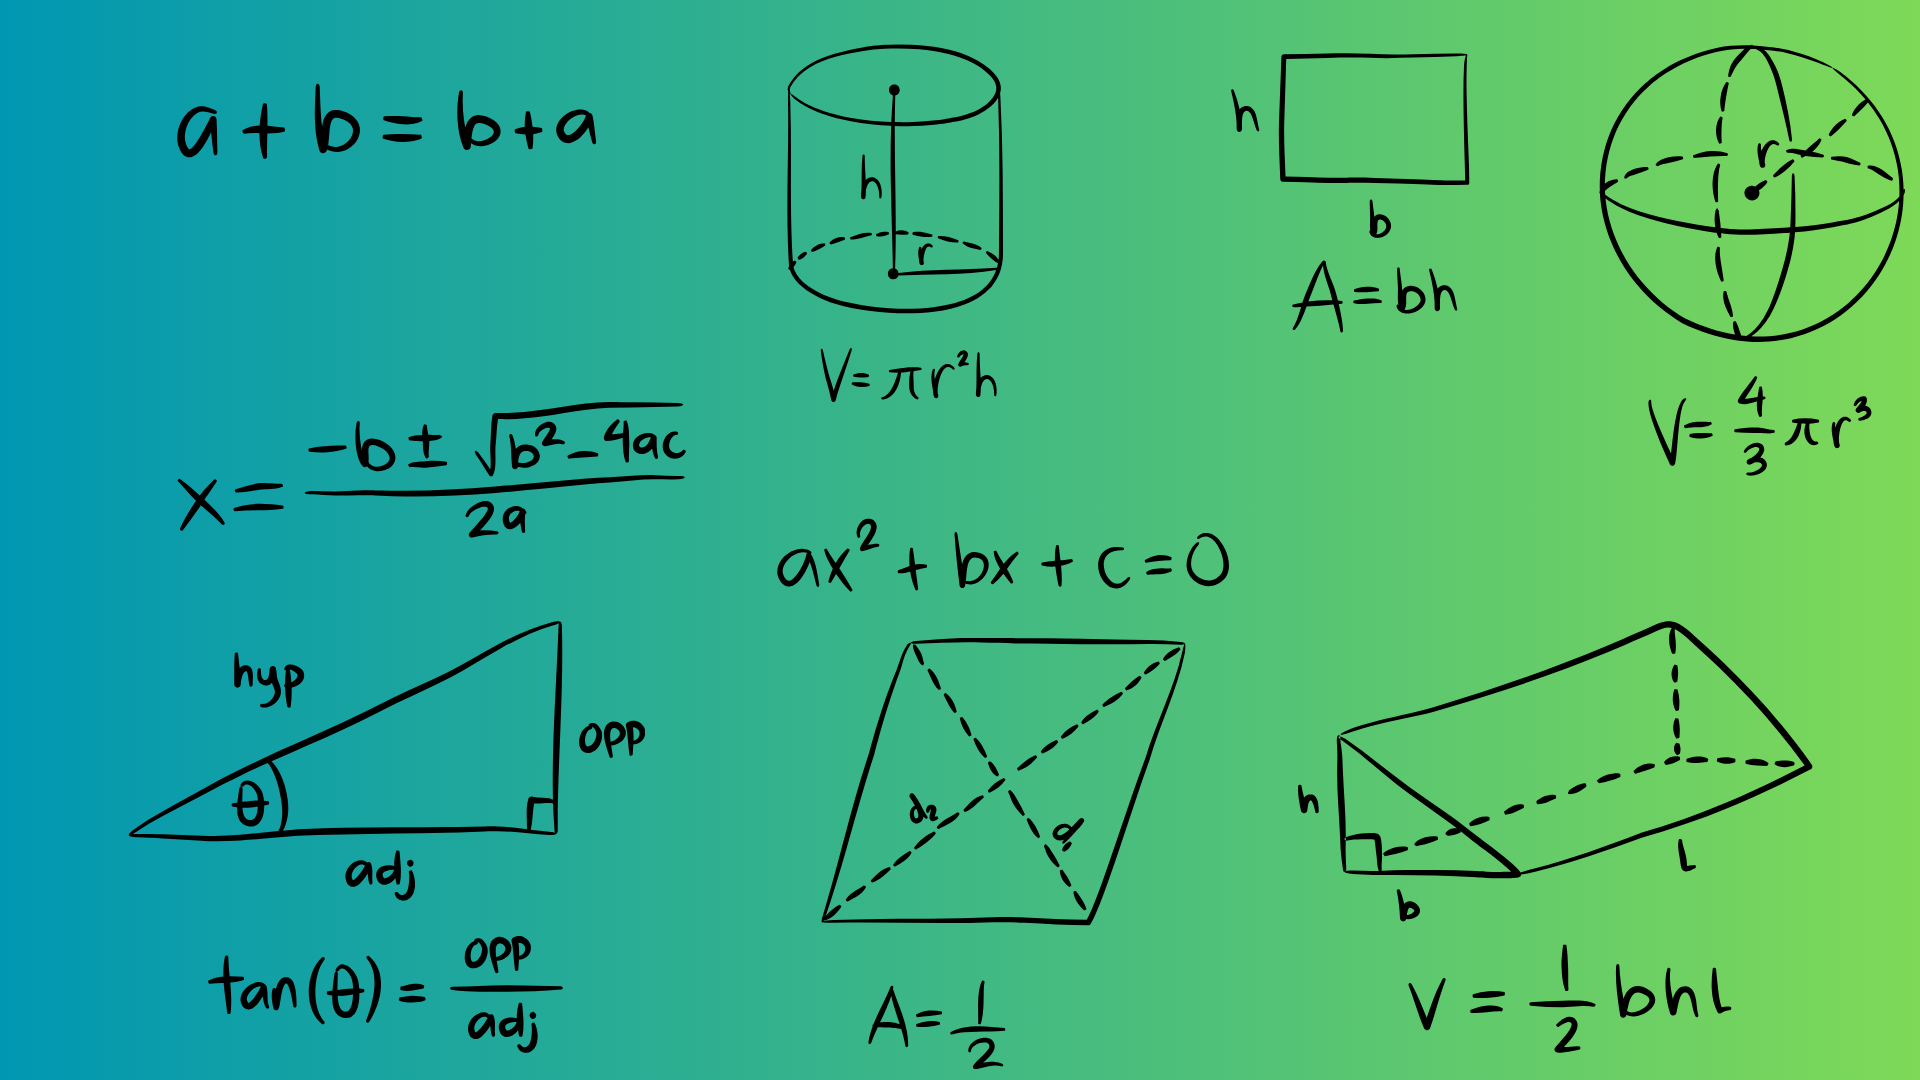 a + b = b + a
h
r
V = πr²h
h
b
A = bh
r
V = 4/3 πr³
x = (-b ± √(b² - 4ac)) / 2a
ax² + bx + c = 0
hyp
opp
θ
adj
tan(θ) = opp/adj
d₂
d₁
A = 1/2
h
b
L
V = 1/2 bhl